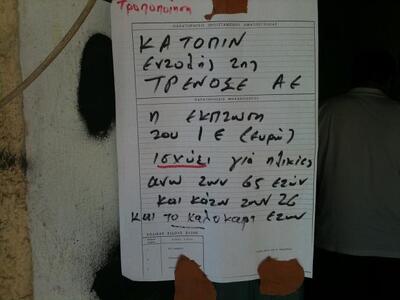 Τροποποίηση
ΚΑΤΟΠΙΝ
εντολής της
ΤΡΕΝΟΣΕ ΑΕ
η ΕΚΠΤΩΣΗ
του 1 Ε (Ευρώ)
Ισχύει για ηλικίες
ανω των 65 ετών
και κάτω των 26
και το καλοκαρι ετων